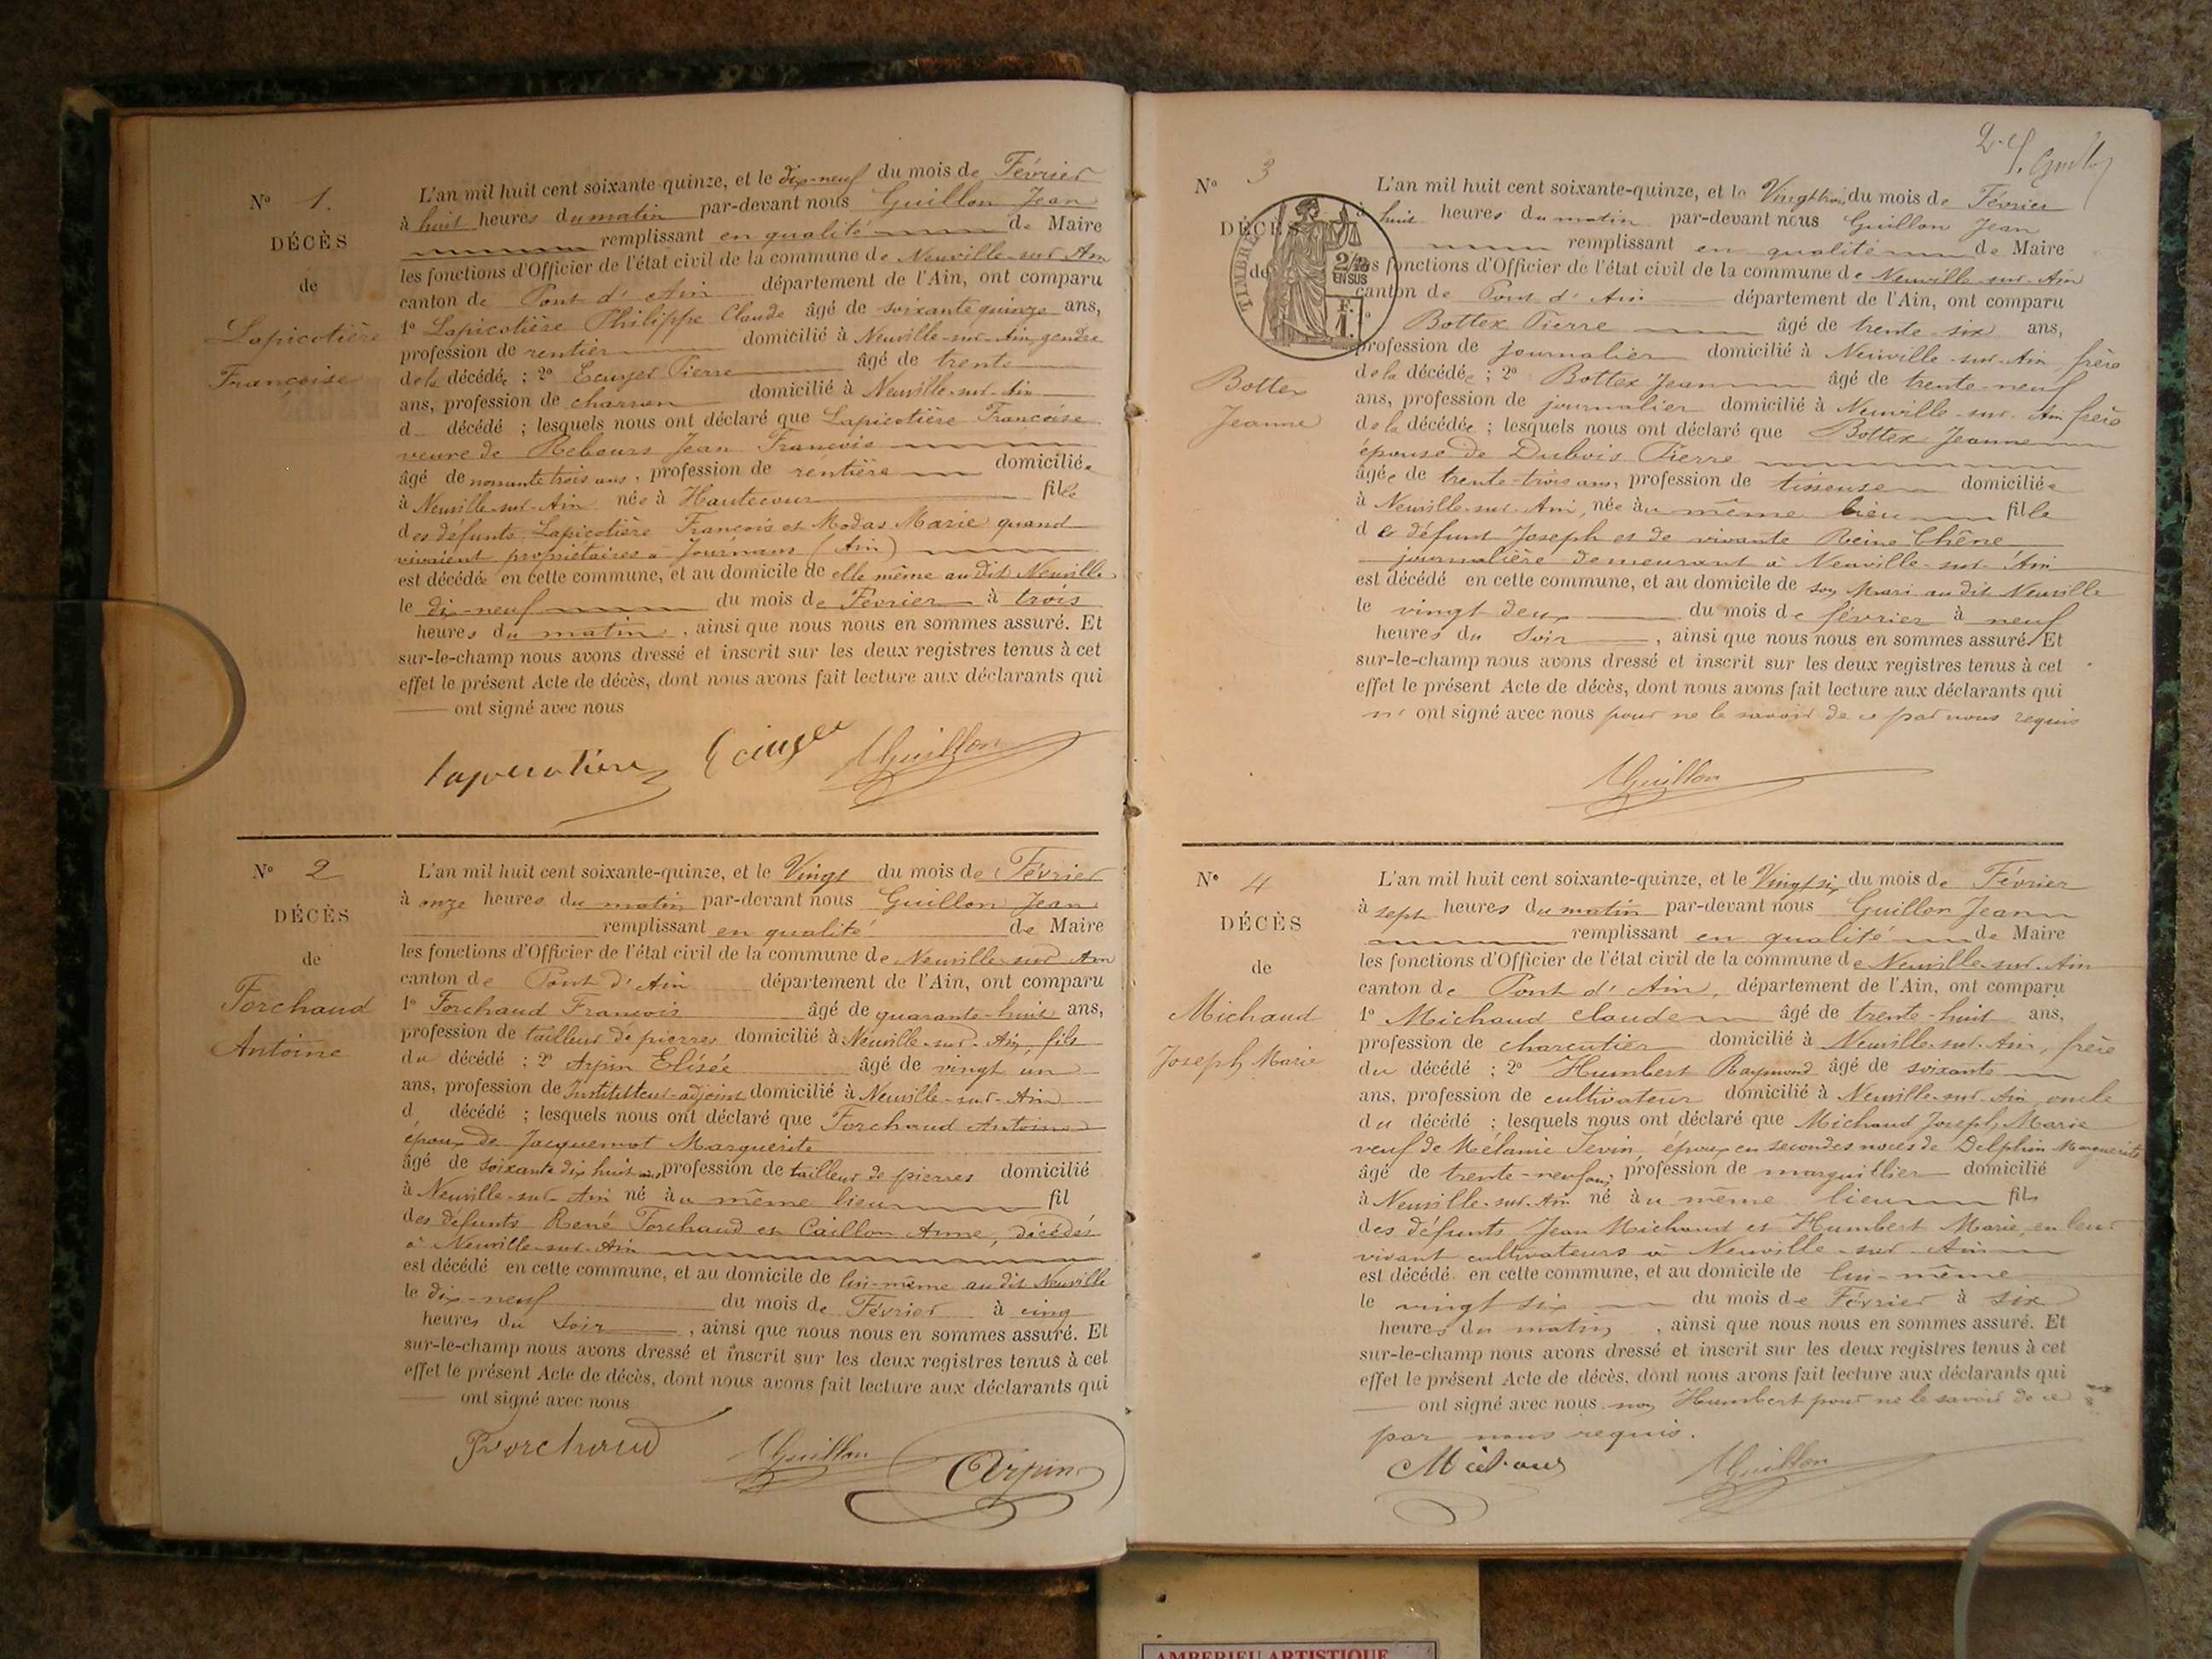 N° 1.
DÉCÈS
de
Lapicotière
Françoise
L'an mil huit cent soixante-quinze, et le dix-neuf du mois de Février
à huit heures du matin par-devant nous Guillon Jean
remplissant en qualité de Maire
les fonctions d'Officier de l'état civil de la commune de Neuville-sur-Ain
canton de Pont d'Ain département de l'Ain, ont comparu
1° Lapicotière Philippe Claude âgé de soixante quinze ans,
profession de rentier domicilié à Neuville-sur-Ain, gendre
de la décédée ; 2° Pierre âgé de trente
ans, profession de charron domicilié à Neuville-sur-Ain
d décédé ; lesquels nous ont déclaré que Lapicotière Françoise
veuve de Rebours Jean François
âgé de nonante trois ans, profession de rentière domiciliée
à Neuville-sur-Ain née à Hautecour fille
des défunts Lapicotière François et Modas Marie quand
vivaient propriétaires à Journans (Ain)
est décédée en cette commune, et au domicile de elle même au dit Neuville
le dix-neuf du mois de Février à trois
heures du matin, ainsi que nous nous en sommes assuré. Et
sur-le-champ nous avons dressé et inscrit sur les deux registres tenus à cet
effet le présent Acte de décès, dont nous avons fait lecture aux déclarants qui
ont signé avec nous
Guillon
N° 2
DÉCÈS
de
Forchaud
Antoine
L'an mil huit cent soixante-quinze, et le Vingt du mois de Février
à onze heures du matin par-devant nous Guillon Jean
remplissant en qualité de Maire
les fonctions d'Officier de l'état civil de la commune de Neuville sur Ain
canton de Pont d'Ain département de l'Ain, ont comparu
1° Forchaud François âgé de quarante-huit ans,
profession de tailleur de pierres domicilié à Neuville-sur-Ain, fils
du décédé ; 2° Arpin Elisée âgé de vingt un
ans, profession de Instituteur-adjoint domicilié à Neuville-sur-Ain
d décédé ; lesquels nous ont déclaré que Forchaud Antoine
époux de Jacquemot Marguerite
âgé de soixante dix huit ans, profession de tailleur de pierres domicilié
à Neuville-sur-Ain né au même lieu fil
des défunts René Forchaud et Caillon Anne, décédés
à Neuville-sur-Ain
est décédé en cette commune, et au domicile de lui-même au dit Neuville
le dix-neuf du mois de Février à cinq
heures du soir, ainsi que nous nous en sommes assuré. Et
sur-le-champ nous avons dressé et inscrit sur les deux registres tenus à cet
effet le présent Acte de décès, dont nous avons fait lecture aux déclarants qui
ont signé avec nous
Forchaud Guillon Arpin
N° 3
DÉCÈS
de
TIMBRE
2/10
EN SUS
F.
1.
Bottex
Jeanne
L'an mil huit cent soixante-quinze, et le Vingt trois du mois de Février
à huit heures du matin par-devant nous Guillon Jean
remplissant en qualité de Maire
les fonctions d'Officier de l'état civil de la commune de Neuville-sur-Ain
canton de Pont d'Ain département de l'Ain, ont comparu
1° Bottex Pierre âgé de trente-six ans,
profession de journalier domicilié à Neuville-sur-Ain, frère
de la décédée ; 2° Bottex Jean âgé de trente-neuf
ans, profession de journalier domicilié à Neuville-sur-Ain frère
de la décédée ; lesquels nous ont déclaré que Bottex Jeanne
épouse de Dubois Pierre
âgée de trente-trois ans, profession de tisseuse domiciliée
à Neuville-sur-Ain, née au même lieu fille
de défunt Joseph et de vivante Reine Chêne
journalière demeurant à Neuville-sur-Ain
est décédé en cette commune, et au domicile de son Mari au dit Neuville
le vingt deux du mois de février à neuf
heures du soir, ainsi que nous nous en sommes assuré. Et
sur-le-champ nous avons dressé et inscrit sur les deux registres tenus à cet
effet le présent Acte de décès, dont nous avons fait lecture aux déclarants qui
n' ont signé avec nous pour ne le savoir de ce par nous requis
Guillon
N° 4
DÉCÈS
de
Michaud
Joseph Marie
L'an mil huit cent soixante-quinze, et le Vingt six du mois de Février
à sept heures du matin par-devant nous Guillon Jean
remplissant en qualité de Maire
les fonctions d'Officier de l'état civil de la commune de Neuville-sur-Ain
canton de Pont d'Ain, département de l'Ain, ont comparu
1° Michaud Claude âgé de trente-huit ans,
profession de charcutier domicilié à Neuville-sur-Ain, frère
du décédé ; 2° Humbert Raymond âgé de soixante
ans, profession de cultivateur domicilié à Neuville-sur-Ain, oncle
du décédé ; lesquels nous ont déclaré que Michaud Joseph Marie
veuf de Mélanie Jevin, époux en secondes noces de Delphin Marguerite
âgé de trente-neuf ans, profession de marguillier domicilié
à Neuville-sur-Ain né au même lieu fils
des défunts Jean Michaud et Humbert Marie, en leur
vivant cultivateurs à Neuville-sur-Ain
est décédé en cette commune, et au domicile de lui-même
le vingt six du mois de Février à six
heures du matin, ainsi que nous nous en sommes assuré. Et
sur-le-champ nous avons dressé et inscrit sur les deux registres tenus à cet
effet le présent Acte de décès, dont nous avons fait lecture aux déclarants qui
ont signé avec nous non Humbert pour ne le savoir de ce
par nous requis.
Michaud Guillon
AMBERIEU ARTISTIQUE